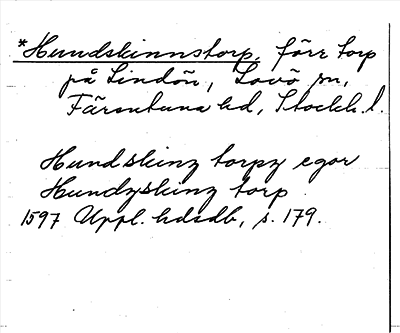 *Hundskinnstorp, förr torp
på Lindön, Lovö sn,
Färentuna hd, Stockh. l.
Hundskinz torpz egor
Hundzskinz torp
1597 Uppl. hdsdb, s. 179.